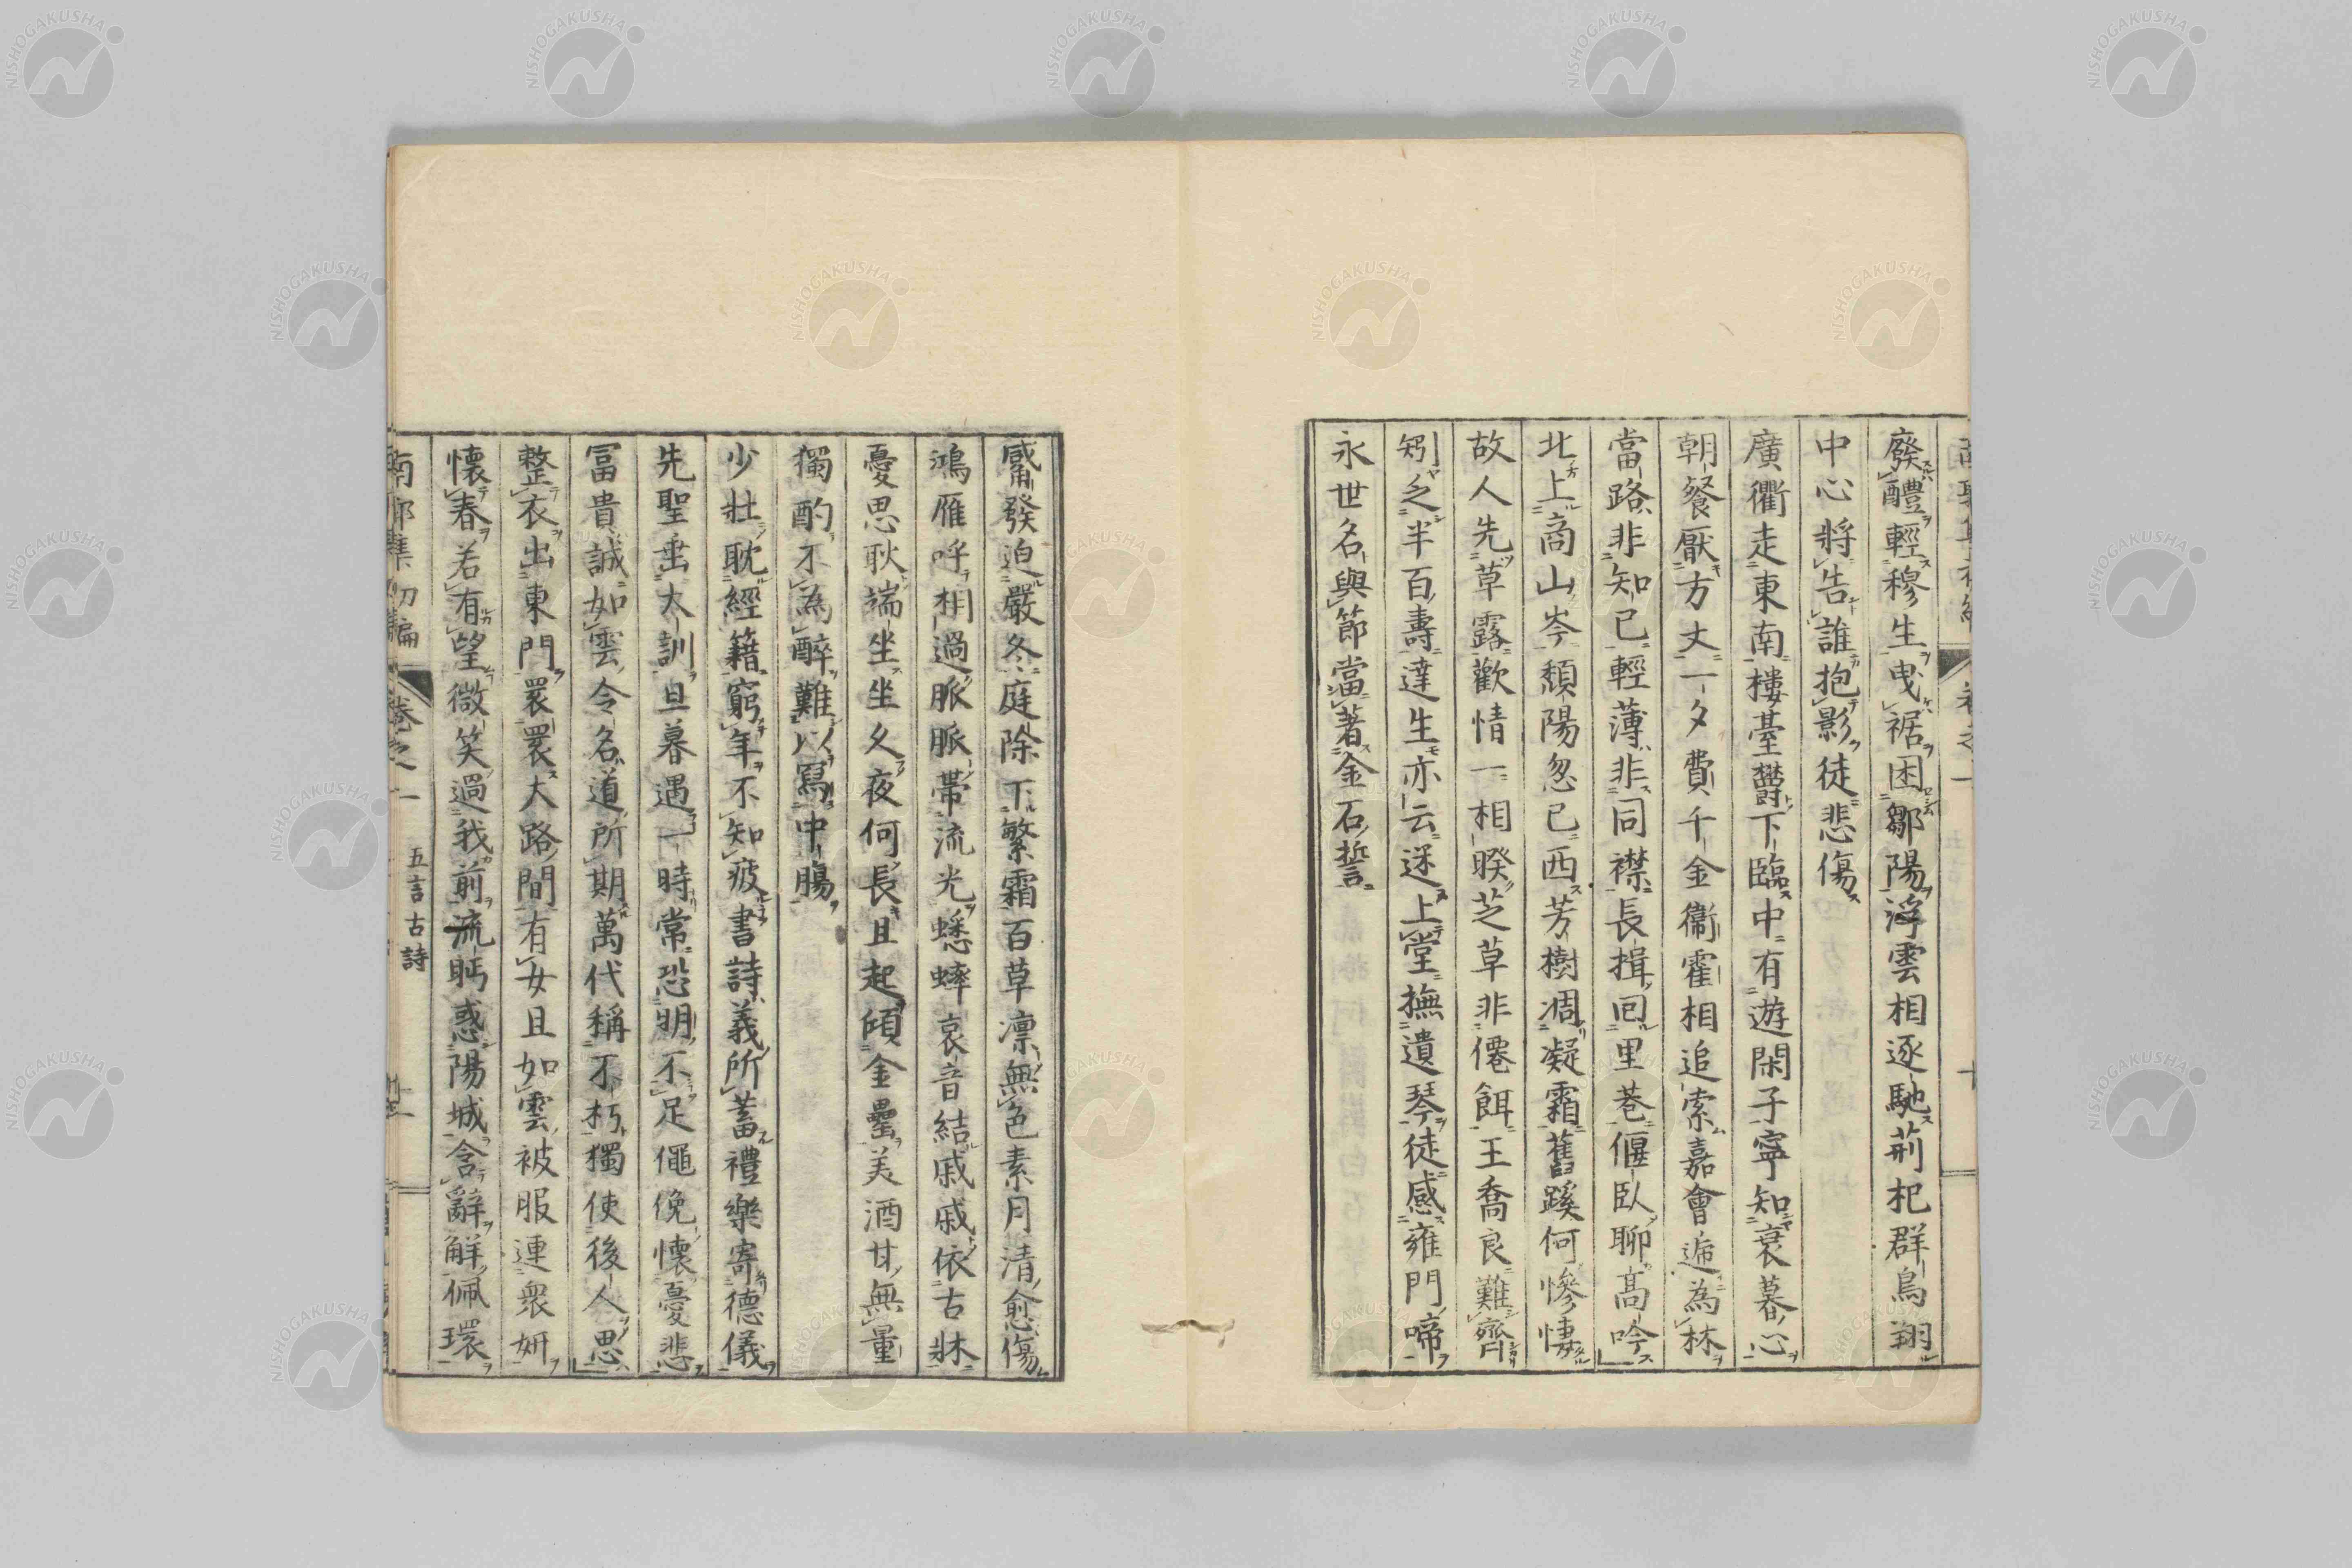 廢醴輕穆生曳裾困鄒陽浮雲相逐馳荊杞群鳥翔
中心將告誰抱影徒悲傷
廣衢走東南樓臺欝下臨中有遊閑子寧知衰暮心
朝餐厭方丈一夕費千金衞霍相追索嘉會遞為林
當路非知已輕薄非同襟長揖回里巷偃臥聊高吟
北上商山岑頽陽忽已西芳樹凋凝霜舊蹊何慘悽
故人先草露歡情一相睽芝草非僊餌王喬良難齊
矧乏半百壽達生亦云迷上堂撫遺琴徒感雍門啼
永世名與節當著金石誓
觱發迫嚴冬庭除下繁霜百草凛無色素月清愈傷
鴻雁呼相過脈脈帶流光蟋蟀哀音結戚戚依古牀
憂思耿端坐坐久夜何長且起傾金罍美酒甘無量
獨酌不為醉難以寫中腸
少壯耽經籍窮年不知疲書詩義所蓄禮樂寄德儀
先聖垂大訓旦暮遇一時常恐明不足僶俛懷憂悲
冨貴誠如雲令名道所期萬代稱不朽獨使後人思
整衣出東門睘睘大路間有女且如雲被服連衆妍
懷春若有望微笑過我前流眄惑陽城含辭解佩環
南郭集初編 卷之一 五言古詩 十一
NISHOGAKUSHA